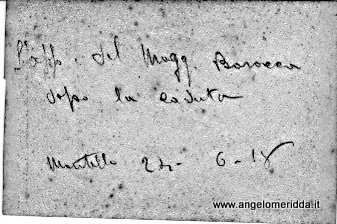 L'app. del Magg. Baracca
dopo la caduta
24 - 6 - 18
www.angelomeridda.it